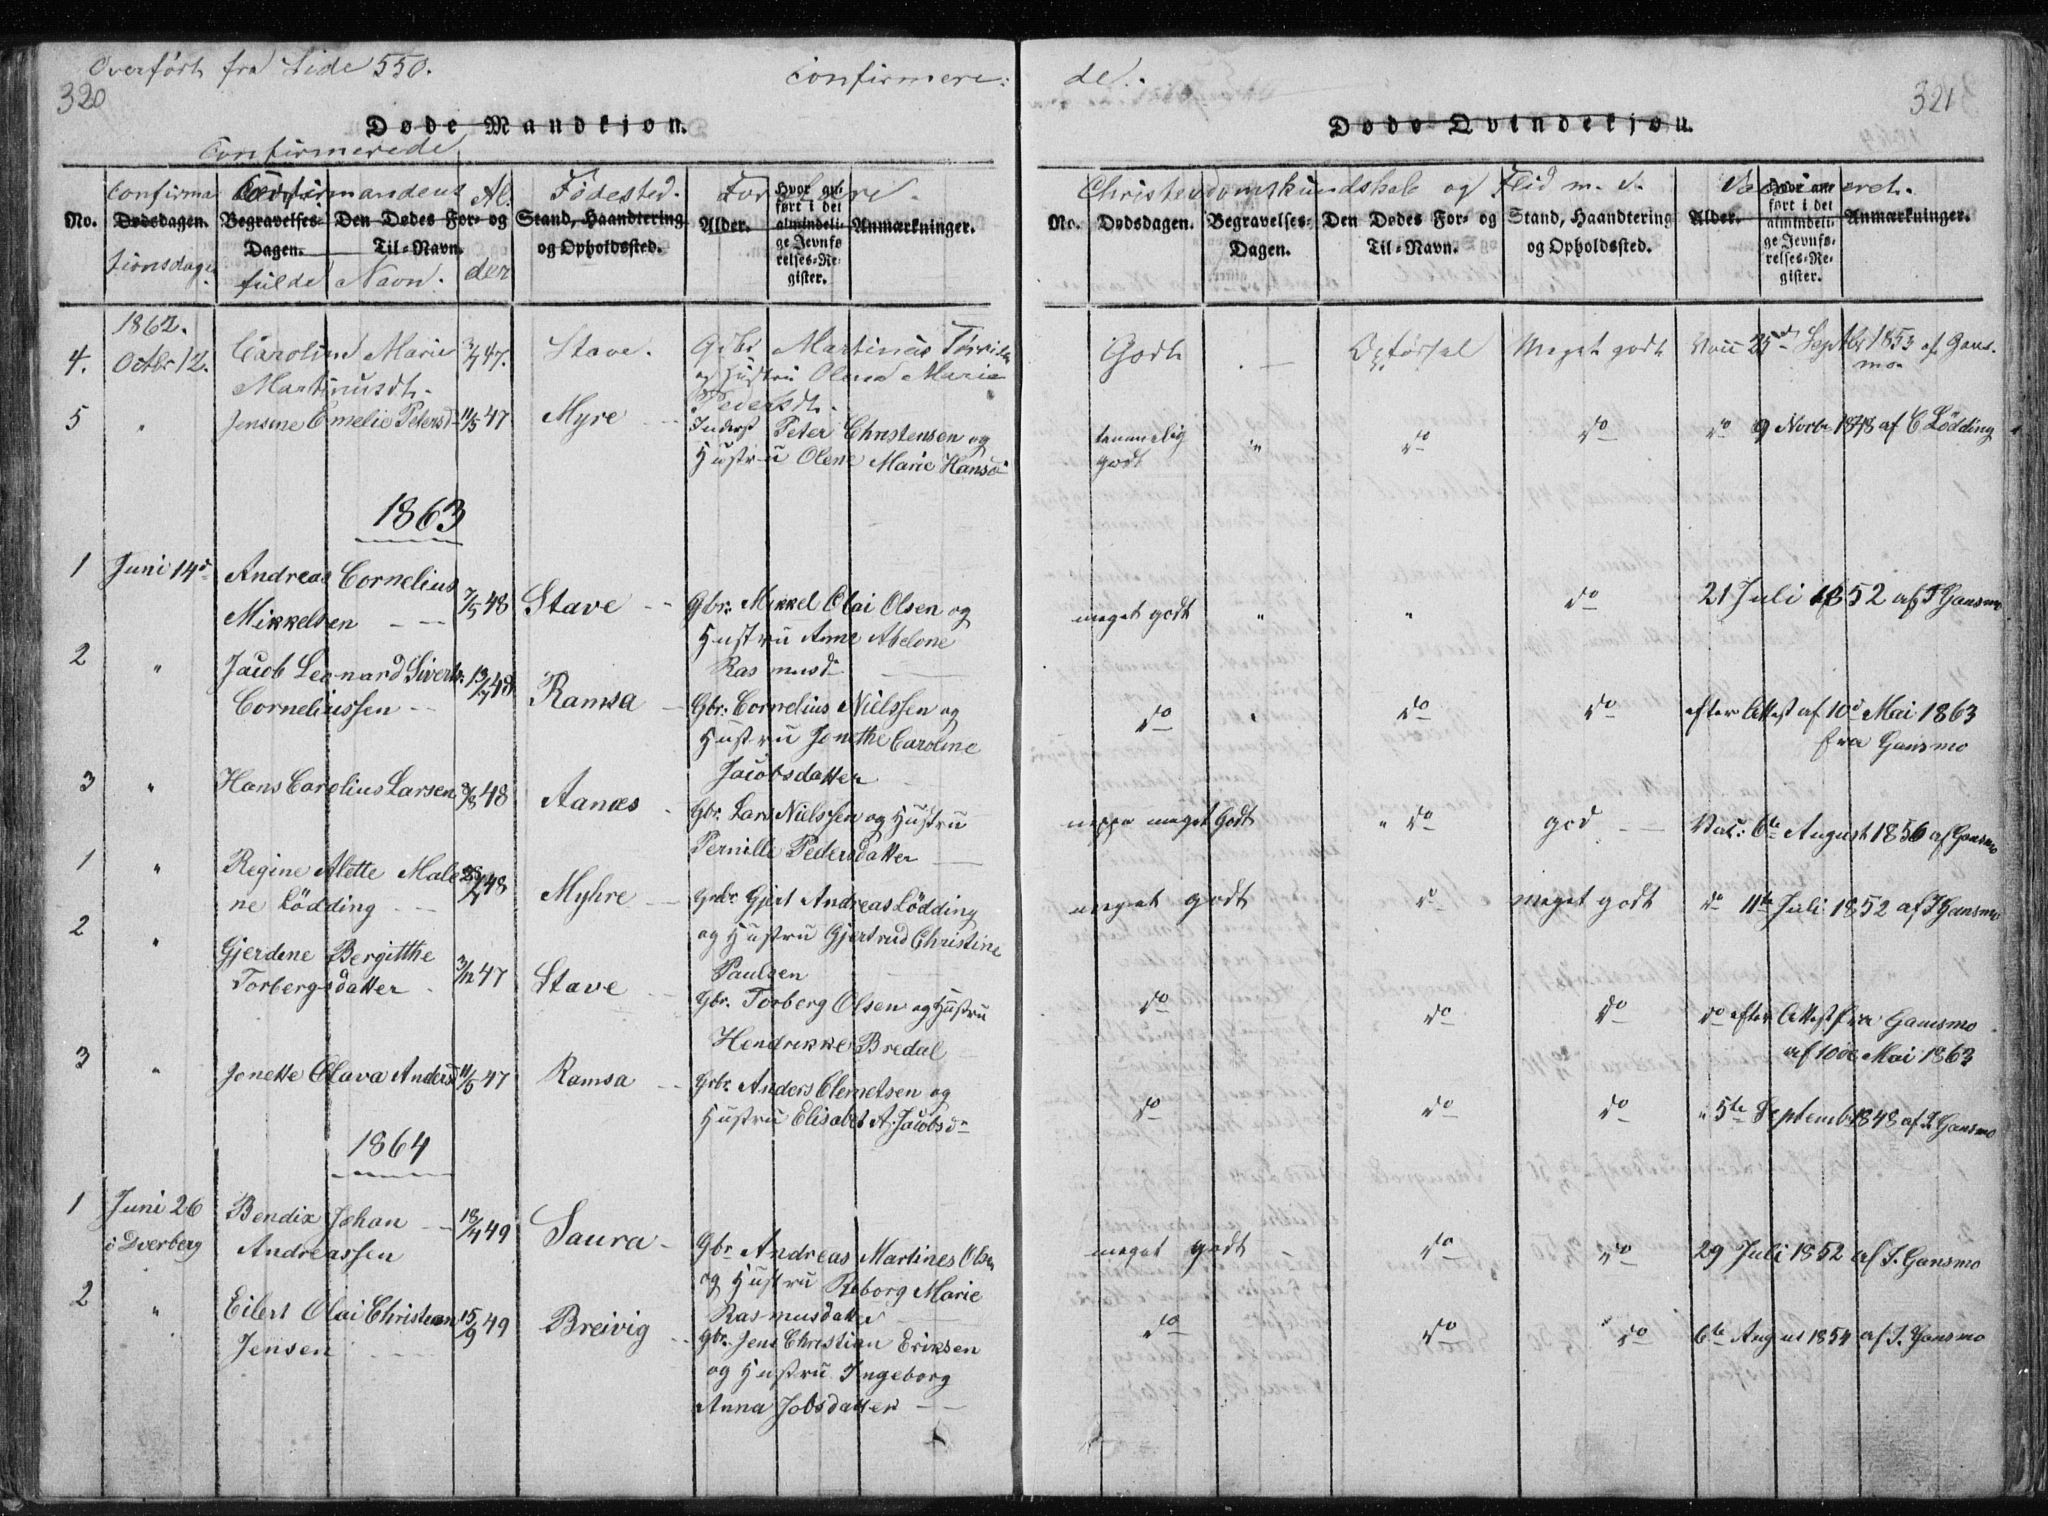 Overført fra Side 550.
320
Confirmere:
Døde Mandkjøn.
Confirmerede
No.
Confirma
Dødsdagen.
tionsdag.
Confirmandens
Begravelses-Dagen.
Den Dødes For- og Til-Navn.
fulde Navn.
Al.
der
Fødested.
Stand, Haandtering og Opholdssted.
Forældre.
Alder.
Hvor anført i det almindelige Jevnførelses-Register.
Anmærkninger.
1862.
4. Octbr 12. Caroline Marie 47. Stave. Gbr Martinus
Martinusdt. og Hustru Olena Marie
Pedersdt.
5 " Jensine Emelie Petersd 11/5 47 Myre Inderst Peter Christensen og
Hustru Olene Marie Hansd
1863
1 Juni 14d Andreas Cornelius 7/5 48 Stave Gbr. Mikkel Olai Olsen og
Mikkelsen Hustru Anne Abelone
Rasmusd
2 " Jacob Leonard Sivert 13/7 48 Ramsa Gbr. Cornelius Nielssen og
Corneliussen Hustru Jonethe Caroline
Jacobsdatter
3 " Hans Carolius Larsen 48 Aanæs Gbr. Lars Nielssen og Hustru
Pernille Pedersdatter
1 " Regine Alette Male 48 Myhre Gbr Gjert Andreas Lödding
ne Lödding og Hustru Gjertrud Christine
Paulsen
2 " Gjerdine Bergitthe 3/12 47 Stave Gbr. Torberg Olsen og Hustru
Torbergsdatter Hendrikke Bredal
3 " Jonette Olava Andersd 11/5 47 Ramsa Gbr Anders Clemetsen og
Hustru Elisabet A. Jacobsd
1864
1 Juni 26 Bendix Johan 49 Saura Gbr Andreas Martines Olsen
i Dverberg Andreassen og Hustru Reborg Marie
Rasmusdatter
2 " Eilert Olai Christian 15/9 49 Breivig Gbr. Jens Christian Eriksen
Jensen og Hustru Ingeborg
Anna Jobsdatter
de.
321
Døde Qvindekjøn.
Christendomskundskab og Flid m. v.
Vaccineret.
No.
Dødsdagen.
Begravelses-Dagen.
Den Dødes For- og Til-Navn.
Stand, Haandtering og Opholdssted.
Alder.
Hvor anført i det almindelige Jevnførelses-Register.
Anmærkninger.
Godt Opførsel Meget godt Vacc 25d Septbr 1853 af Gans-
mo.
temmelig " do do do 9 Novbr 1848 af C Lödding
godt
meget godt " " do 21 Juli 1852 af J Gansmo
do " do do efter Attest af 10d Mai 1863
fra Gansmo
neppe meget Godt " do god Vac: 6te August 1856 af Gansmo
meget godt do meget godt do 11te Juli 1852 af J Gansmo
do do do do efter Attest fra Gansmo
af 10de Mai 1863
do do do " 5te Septemb 1848 af J. Gansmo
meget godt do do 29 Juli 1852 af J. Gansmo
do do do 6te Augus 1854 af J. Gansmo